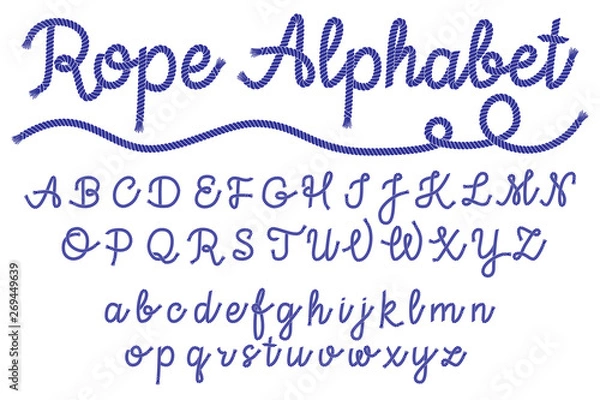 Rope Alphabet
A B C D E F G H I J K L M N
O P Q R S T U V W X Y Z
a b c d e f g h i j k l m n
o p q r s t u v w x y z
Adobe Stock | #269449639